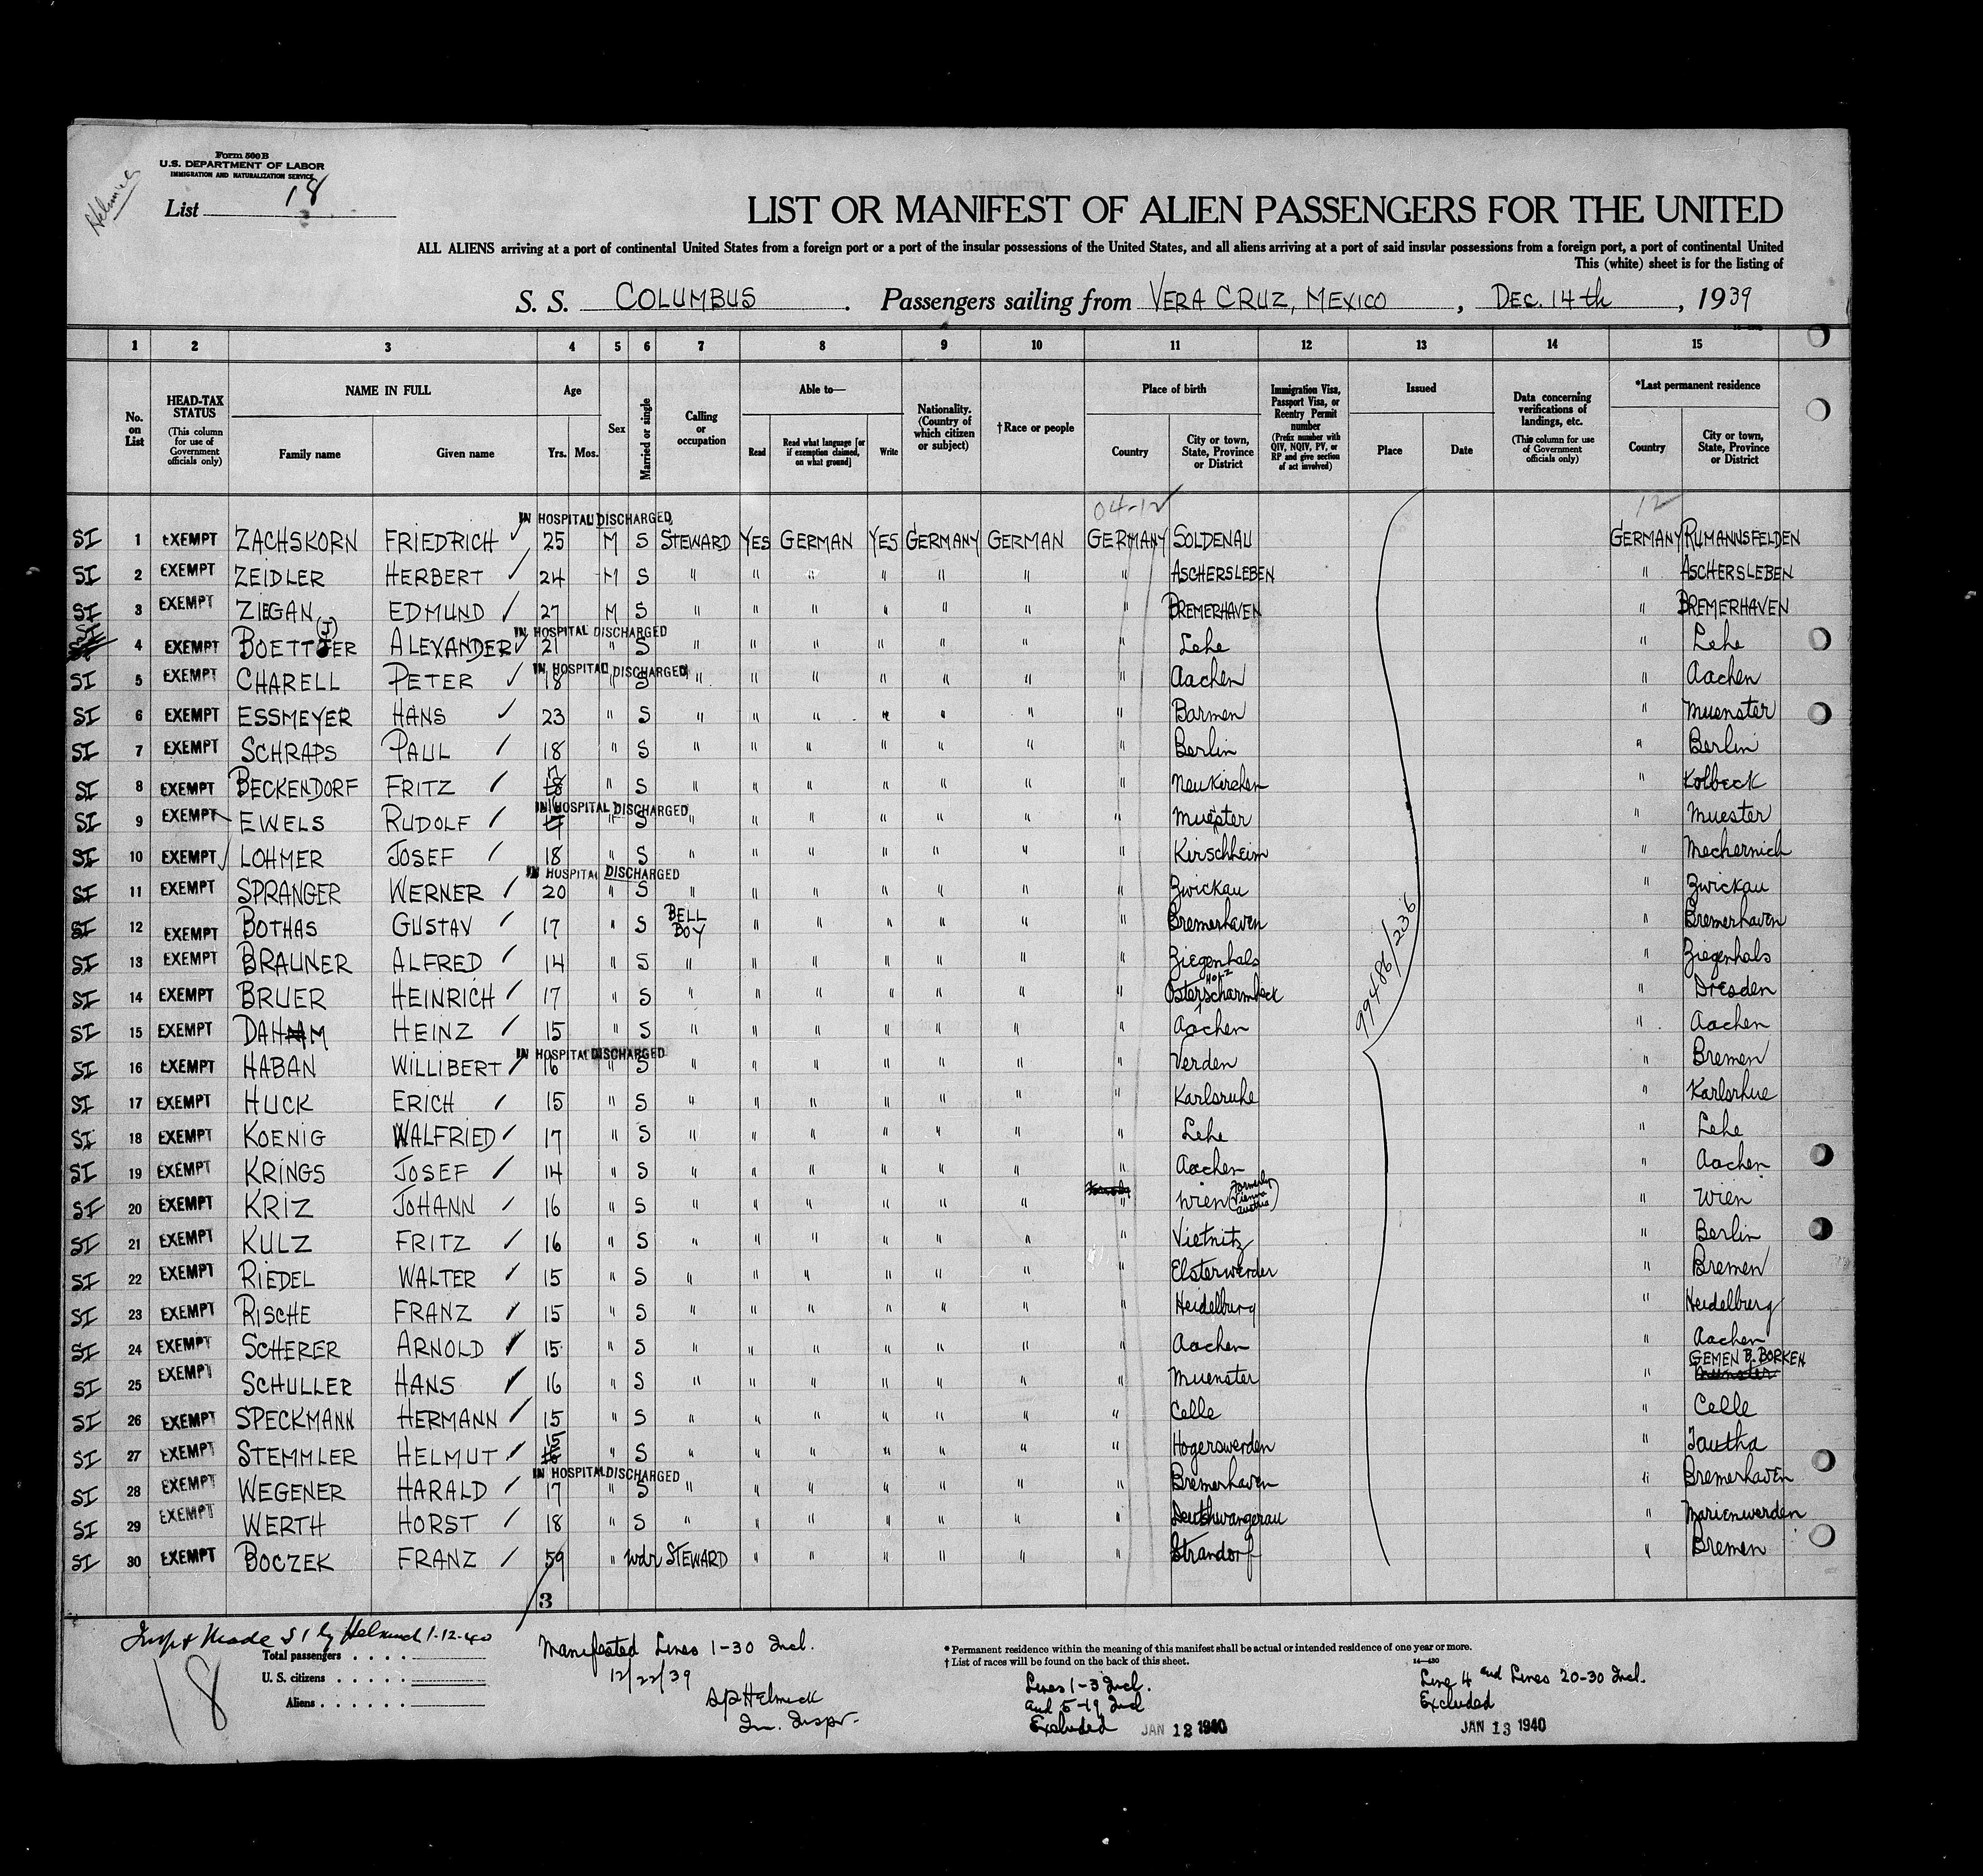 Form 500 B
U.S. DEPARTMENT OF LABOR
IMMIGRATION AND NATURALIZATION SERVICE
Helmick
List 18
LIST OR MANIFEST OF ALIEN PASSENGERS FOR THE UNITED
ALL ALIENS arriving at a port of continental United States from a foreign port or a port of the insular possessions of the United States, and all aliens arriving at a port of said insular possessions from a foreign port, a port of continental United
This (white) sheet is for the listing of
S. S. COLUMBUS. Passengers sailing from VERA CRUZ, MEXICO, DEC. 14th, 1939
1 2 3 4 5 6 7 8 9 10 11 12 13 14 15
No. on List
HEAD-TAX STATUS (This column for use of Government officials only)
NAME IN FULL Family name Given name
Age Yrs. Mos.
Sex
Married or single
Calling or occupation
Able to— Read Read what language [or if exemption claimed, on what ground] Write
Nationality. (Country of which citizen or subject)
†Race or people
Place of birth Country City or town, State, Province or District
Immigration Visa, Passport Visa, or Reentry Permit number (Prefix number with QIV, NQIV, PV, or RP and give section of act involved)
Issued Place Date
Data concerning verifications of landings, etc. (This column for use of Government officials only)
*Last permanent residence Country City or town, State, Province or District
04-12 12
IN HOSPITAL DISCHARGED
SI 1 EXEMPT ZACHSKORN FRIEDRICH ✓ 25 M S STEWARD YES GERMAN YES GERMANY GERMAN GERMANY SOLDENAU GERMANY RUMANNSFELDEN
SI 2 EXEMPT ZEIDLER HERBERT ✓ 24 M S " " " " " " " ASCHERSLEBEN " ASCHERSLEBEN
SI 3 EXEMPT ZIEGAN EDMUND ✓ 27 M S " " " " " " " BREMERHAVEN " BREMERHAVEN
IN HOSPITAL DISCHARGED
4 EXEMPT BOETTJER (J) ALEXANDER ✓ 21 " S " " " " " " " Lehe " Lehe
IN HOSPITAL DISCHARGED
SI 5 EXEMPT CHARELL PETER ✓ 18 " S " " " " " " " Aachen " Aachen
SI 6 EXEMPT ESSMEYER HANS ✓ 23 " S " " " " " " " Barmen " Muenster
SI 7 EXEMPT SCHRAPS PAUL ✓ 18 " S " " " " " " " Berlin " Berlin
SI 8 EXEMPT BECKENDORF FRITZ ✓ 17 18 " S " " " " " " " Neukirchen " Kolbeck
IN HOSPITAL DISCHARGED
SI 9 EXEMPT EWELS RUDOLF ✓ " S " " " " " " " Muester " Muester
SI 10 EXEMPT LOHMER JOSEF ✓ 18 " S " " " " " " " Kirschheim " Mechernich
IN HOSPITAL DISCHARGED
SI 11 EXEMPT SPRANGER WERNER ✓ 20 " S " " " " " " " Zwickau " Zwickau
SI 12 EXEMPT BOTHAS GUSTAV ✓ 17 " S BELL BOY " " " " " " Bremerhaven " Bremerhaven
SI 13 EXEMPT BRAUNER ALFRED ✓ 14 " S " " " " " " " Ziegenhals " Ziegenhals
SI 14 EXEMPT BRUER HEINRICH ✓ 17 " S " " " " " " " Osterscharmbeck " Dresden
SI 15 EXEMPT DAHM HEINZ ✓ 15 " S " " " " " " " Aachen " Aachen
IN HOSPITAL DISCHARGED
SI 16 EXEMPT HABAN WILLIBERT ✓ 16 " S " " " " " " " Verden " Bremen
SI 17 EXEMPT HUCK ERICH ✓ 15 " S " " " " " " " Karlsruhe " Karlsrhue
SI 18 EXEMPT KOENIG WALFRIED ✓ 17 " S " " " " " " " Lehe " Lehe
SI 19 EXEMPT KRINGS JOSEF ✓ 14 " S " " " " " " " Aachen " Aachen
SI 20 EXEMPT KRIZ JOHANN ✓ 16 " S " " " " " " " Wien (Formerly Vienna Austria) " Wien
SI 21 EXEMPT KULZ FRITZ ✓ 16 " S " " " " " " " Vietnitz " Berlin
SI 22 EXEMPT RIEDEL WALTER ✓ 15 " S " " " " " " " Elsterwerder " Bremen
SI 23 EXEMPT RISCHE FRANZ ✓ 15 " S " " " " " " " Heidelburg " Heidelburg
SI 24 EXEMPT SCHERER ARNOLD ✓ 15 " S " " " " " " " Aachen " Aachen
SI 25 EXEMPT SCHULLER HANS ✓ 16 " S " " " " " " " Muenster " GEMEN B. BORKEN Muenster
SI 26 EXEMPT SPECKMANN HERMANN ✓ 15 " S " " " " " " " Celle " Celle
SI 27 EXEMPT STEMMLER HELMUT ✓ 15 16 " S " " " " " " " Hogerswerden " Tautha
IN HOSPITAL DISCHARGED
SI 28 EXEMPT WEGENER HARALD ✓ 17 " S " " " " " " " Bremerhaven " Bremerhaven
SI 29 EXEMPT WERTH HORST ✓ 18 " S " " " " " " " Deutshwangerau " Marienwerden
SI 30 EXEMPT BOCZEK FRANZ ✓ 59 " wdr STEWARD " " " " " " Strandorf " Bremen
99486/236
3
Insp't Made S I by Helmick 1-12-40
Total passengers
U. S. citizens
Aliens
18
Manifested Lines 1-30 Incl.
12/22/39
Helmick
Im. Inspr.
* Permanent residence within the meaning of this manifest shall be actual or intended residence of one year or more.
† List of races will be found on the back of this sheet.
14—430
Lines 1-3 Incl.
and 5-19 Incl
Excluded JAN 12 1940
Line 4 and Lines 20-30 Incl.
Excluded
JAN 13 1940